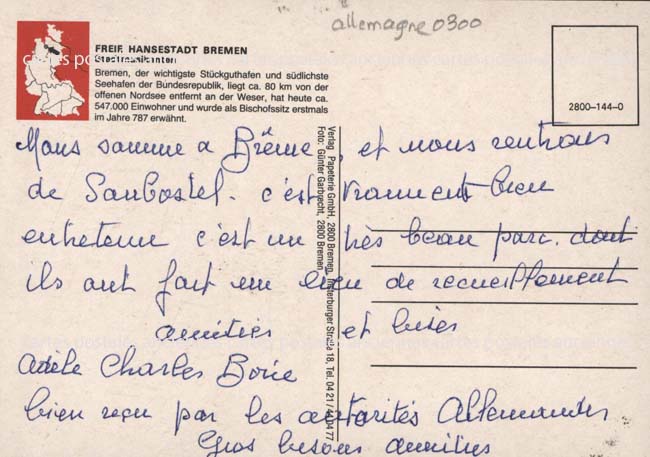 allemagne 0300
FREIE HANSESTADT BREMEN
Stadtmusikanten
Bremen, der wichtigste Stückguthafen und südlichste
Seehafen der Bundesrepublik, liegt ca. 80 km von der
offenen Nordsee entfernt an der Weser, hat heute ca.
547.000 Einwohner und wurde als Bischofssitz erstmals
im Jahre 787 erwähnt.
2800-144-0
Verlag Papeterie GmbH, 2800 Bremen, Insterburger Straße 18, Tel. 04 21 / 44 04 77
Foto: Günter Garbrecht, 2800 Bremen
Nous somme a Brême, et nous rentrons
de Sanbostel. c'est vraiment bien
entretenu c'est un très beau parc. dont
ils ont fait un lieu de recueillement
amitiés et bises
Adèle Charles Borie
bien reçu par les autorités Allemandes
Gros besous amitiés